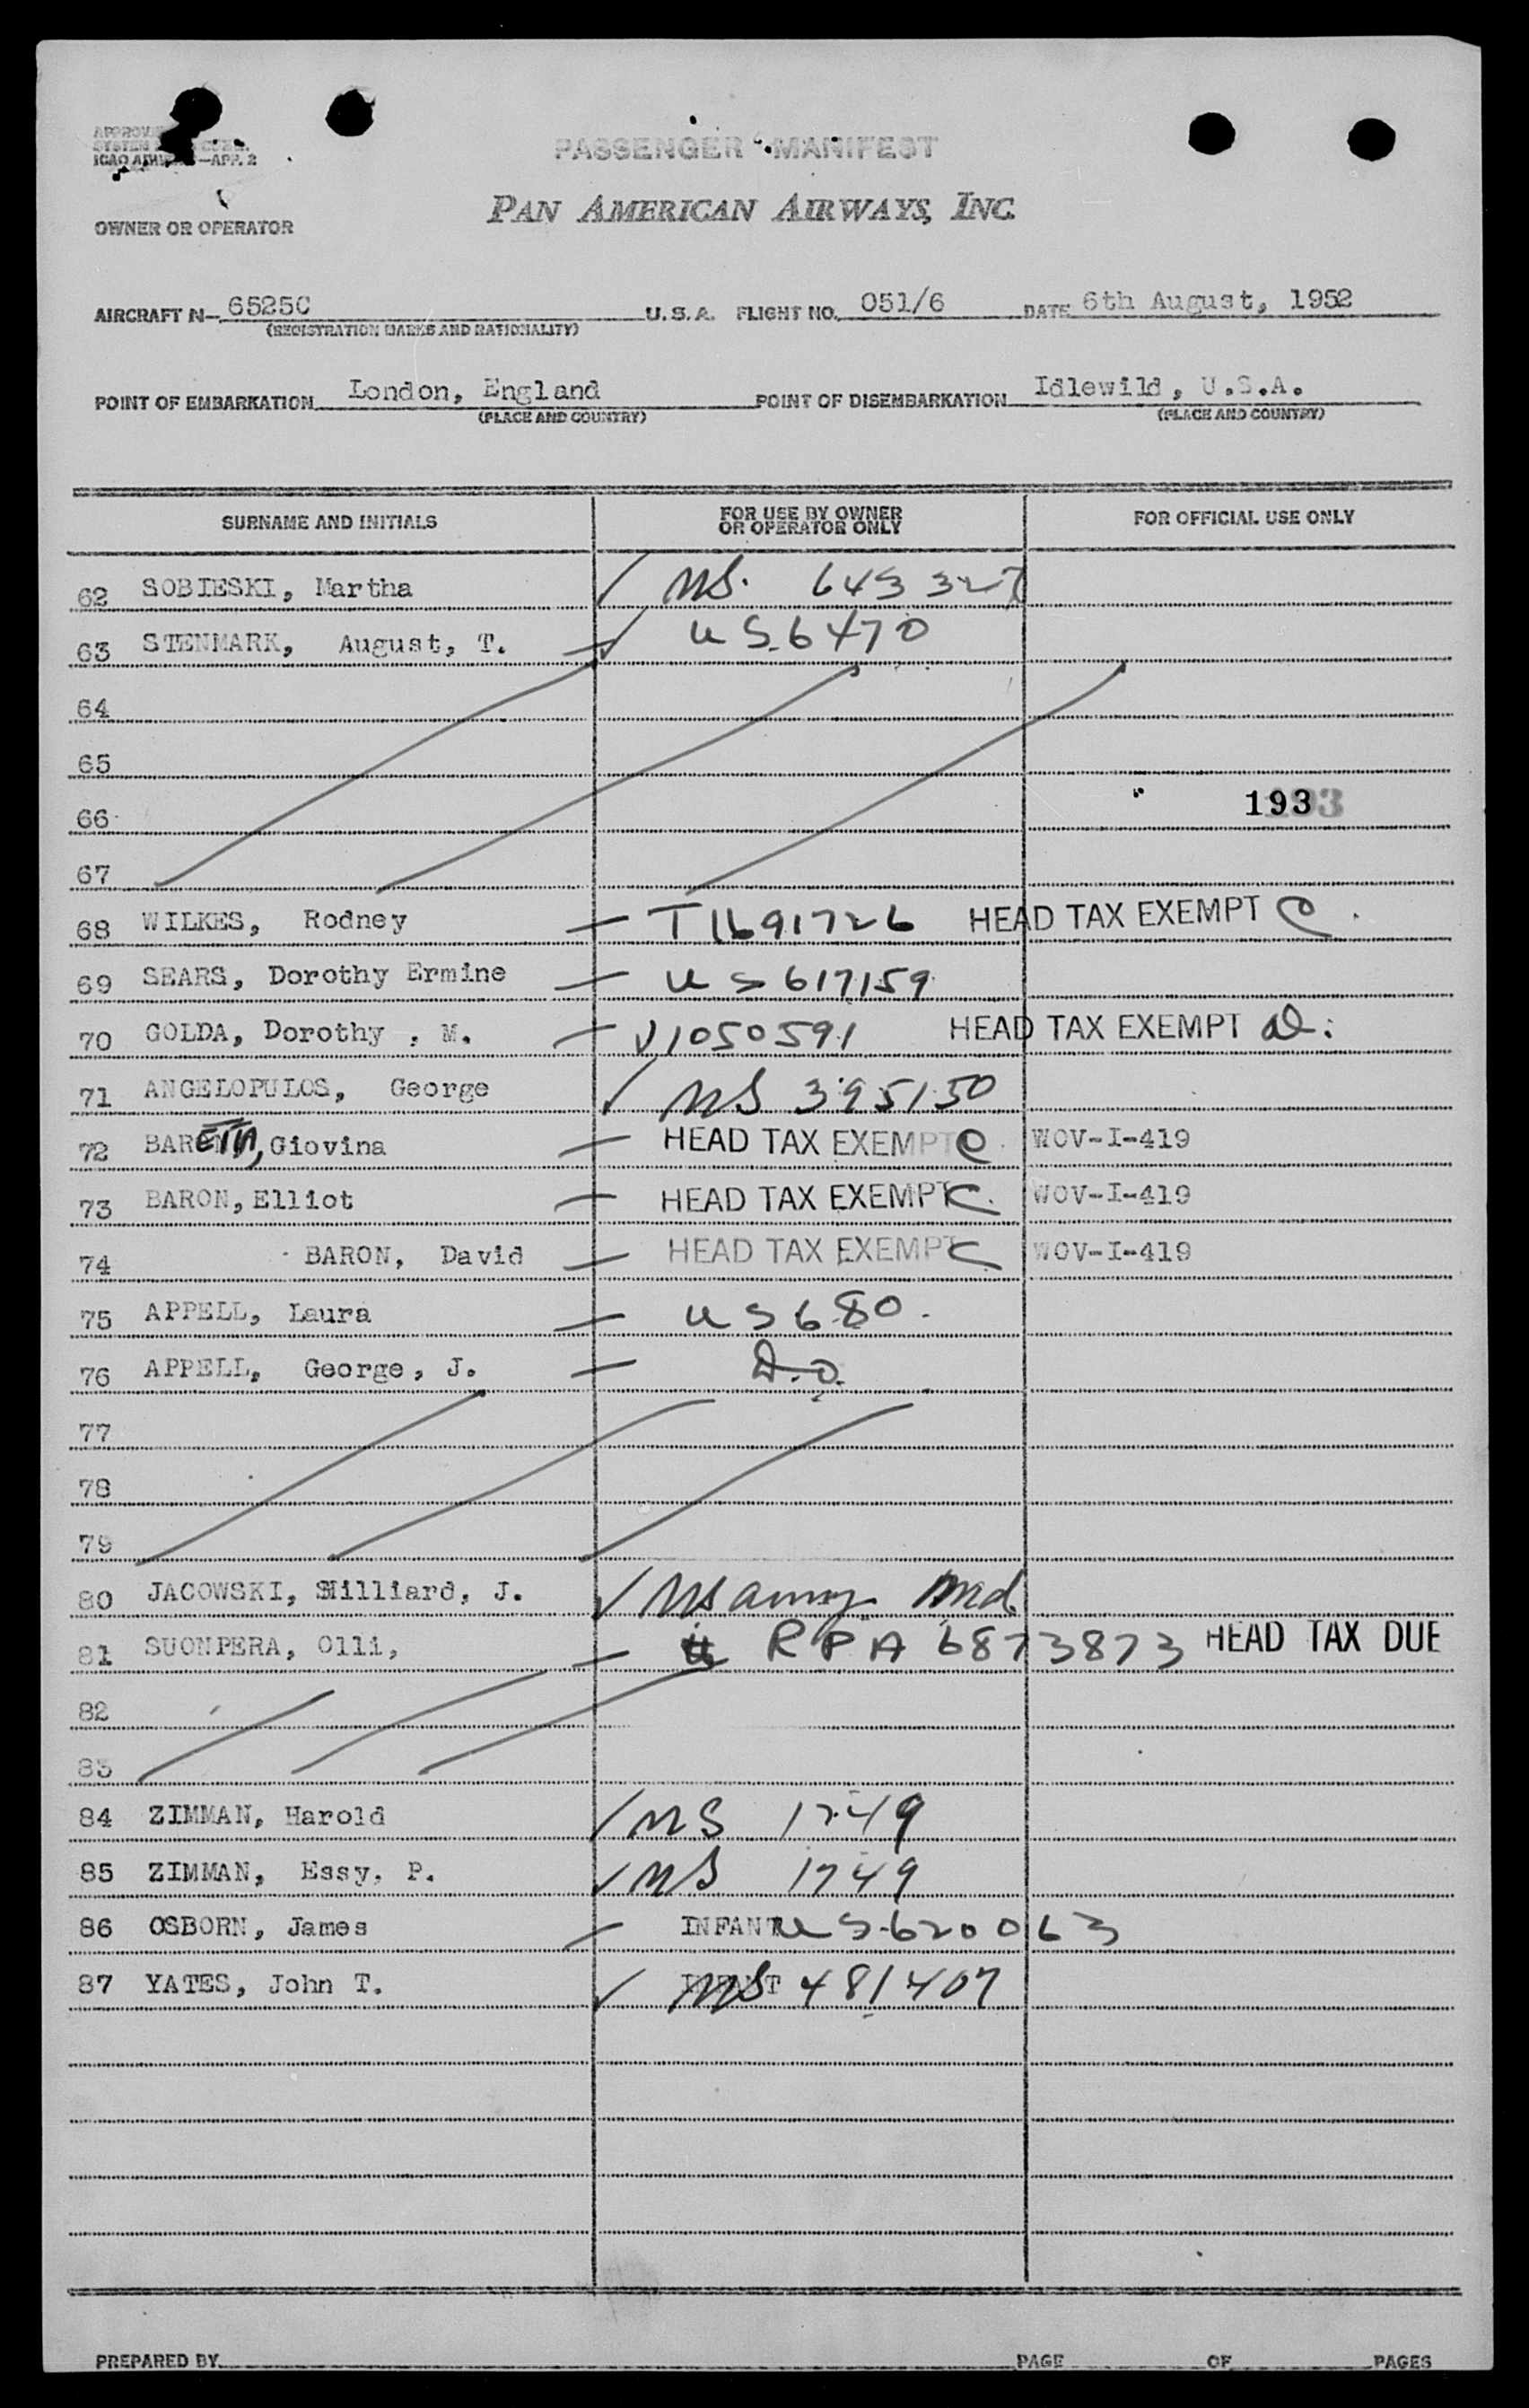 PASSENGER MANIFEST
ICAO —APP. 2
PAN AMERICAN AIRWAYS, INC.
OWNER OR OPERATOR
AIRCRAFT N— 6525C U.S.A. FLIGHT NO. 051/6 DATE 6th August, 1952
(REGISTRATION MARKS AND NATIONALITY)
POINT OF EMBARKATION London, England POINT OF DISEMBARKATION Idlewild, U.S.A.
(PLACE AND COUNTRY) (PLACE AND COUNTRY)
SURNAME AND INITIALS FOR USE BY OWNER OR OPERATOR ONLY FOR OFFICIAL USE ONLY
62 SOBIESKI, Martha US. 643327
63 STENMARK, August, T. US 6470
64
65
66 193
67
68 WILKES, Rodney T1691726 HEAD TAX EXEMPT
69 SEARS, Dorothy Ermine US 617159
70 GOLDA, Dorothy, M. V1050591 HEAD TAX EXEMPT
71 ANGELOPULOS, George US 395150
72 BARETTA, Giovina HEAD TAX EXEMPT WOV-I-419
73 BARON, Elliot HEAD TAX EXEMPT WOV-I-419
74 BARON, David HEAD TAX EXEMPT WOV-I-419
75 APPELL, Laura US 680.
76 APPELL, George, J. D.O.
77
78
79
80 JACOWSKI, Milliard, J. US army
81 SUONPERA, Olli, RPA 6873873 HEAD TAX DUE
82
83
84 ZIMMAN, Harold US 1749
85 ZIMMAN, Essy, P. US 1749
86 OSBORN, James INFANT US 620063
87 YATES, John T. INFANT US 481407
PREPARED BY PAGE OF PAGES